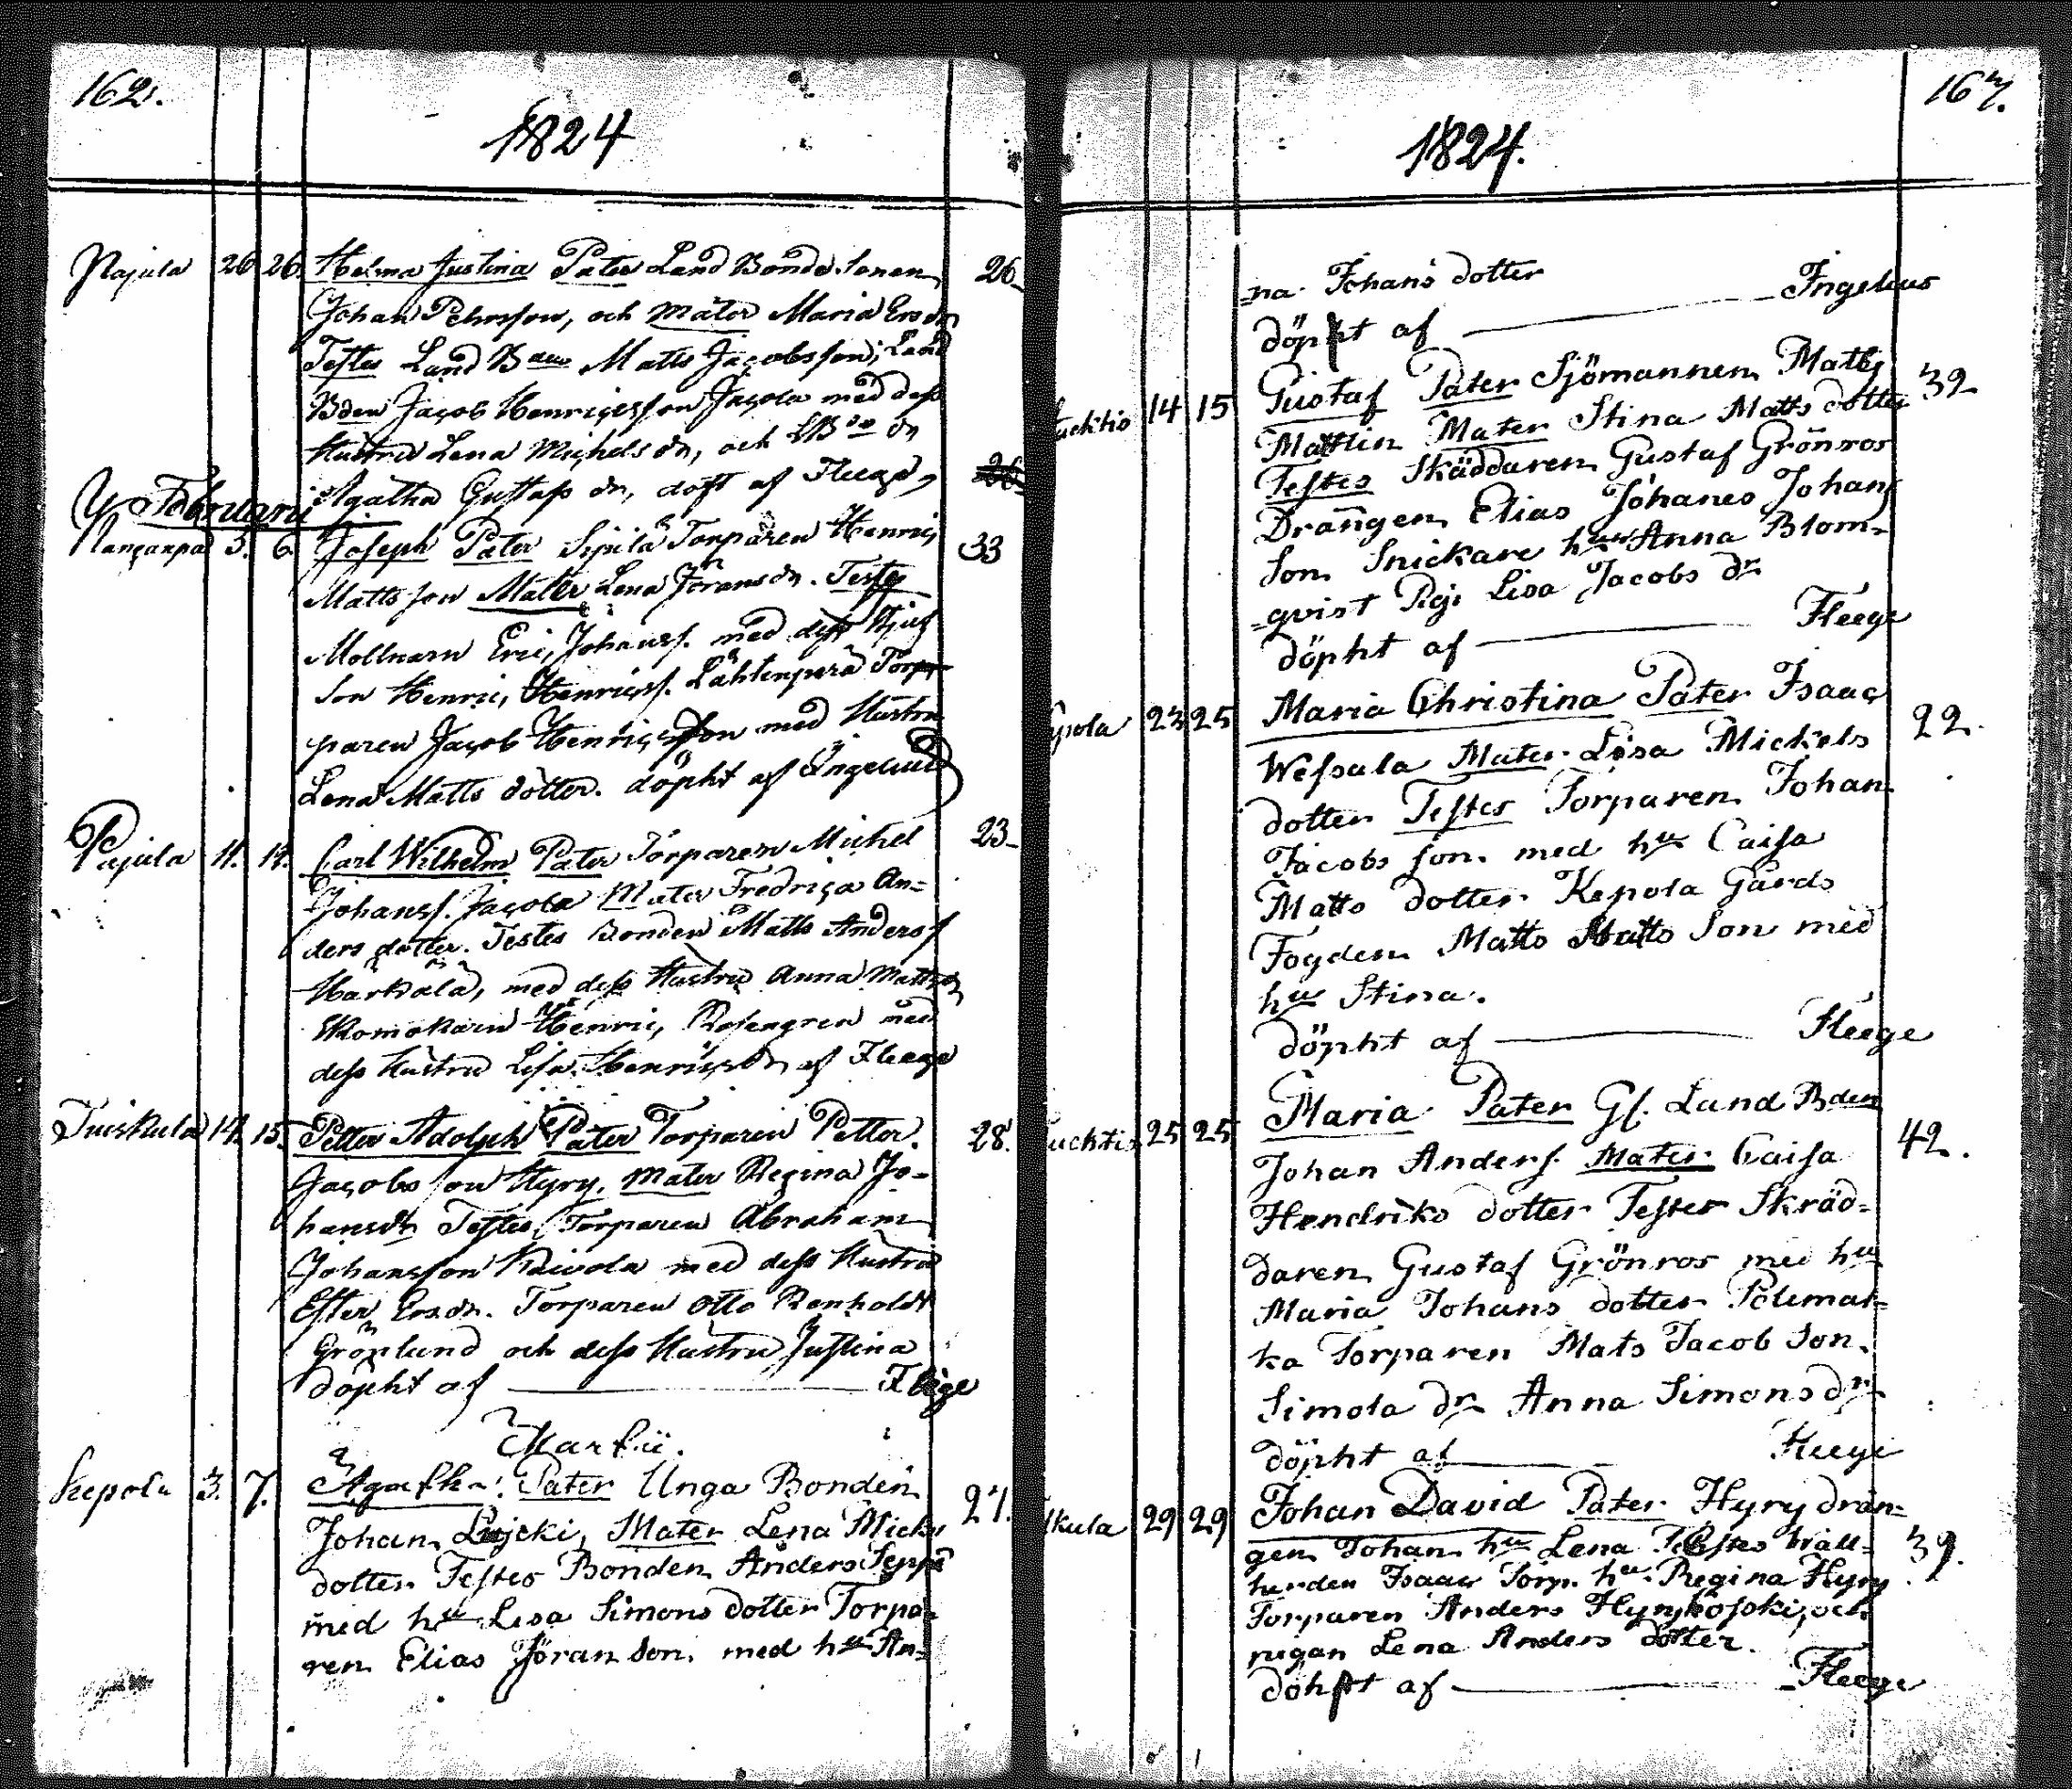 162.
1824
Pajula 26 26. Helma Justina Pater Land Bonde Sonen 26
Johan Pehrsson, och Mater Maria Ersdr
Testes Land Bden Matts Jacobsson, Land
Bden Jacob Henricsson Jacola med dess
Hustru Lena Michelsdr, och LBde dr
Agatha Gustafs dr, döpt af Fleege
Februarii
3. 6. Joseph Pater Sipilä Torparen Henric 33
Matts son Mater Lena Jöransdr. Testes
Mollnarn Eric Johanss. med dess
son Henric Henricss. Lähtenperä Tor-
paren Jacob Henricsson med Hustru
Lena Matts dotter. döpht af Ingelius
Pajula 11. 14. Carl Wilhelm Pater Torparen Michel 23
Johanss. Jacola Mater Fredrica An-
ders dotter. Testes Bonden Matts Anderss
Härkälä, med dess Hustru Anna Mattsdr
Skomakarn Henric Rosengren med
dess Hustru Lisa Henricsdr af Fleege
Tuiskula 14. 15. Petter Adolph Pater Torparen Petter 28.
Jacobsson Hyry, Mater Regina Jo-
hansdr Testes Torparen Abraham
Johansson Kaivola med dess Hustru
Ester Ersdr. Torparen Otto Renholdt
Grönlund och dess Hustru Justina
döpht af Fleege
Martii.
Kepola 3. 7. Agatha: Pater Unga Bonden 27.
Johan Mater Lena Mickels
dotter Testes Bonden Anders Seppä
med hu Lisa Simons dotter Torpa-
ren Elias Jöran Son. med hu An-
163.
1824.
na Johans dotter
döpht af Ingelius
14 15 Gustaf Pater Sjömannen Matts 32
Mattlin Mater Stina Matts dotter
Testes Skäddaren Gustaf Grönros
Drängen Elias Johanes Johans
Son Snickare hus Anna Blom-
qvist Pig. Lisa Jacobs dr
döpht af Fleege
23 25 Maria Christina Pater Isaac 22.
Wessala Mater Lisa Mickels
dotter Testes Torparen Johan
Jacobs son. med hu Caisa
Matts dotter Kepola Gårds
Fogden Matts Matts Son med
hu Stina.
döpht af Fleege
25 25 Maria Pater Gl. Land Bden 42.
Johan Anders. Mater Caisa
Hendriks dotter Testes Skräd-
daren Gustaf Grönros med hu
Maria Johans dotter Polemat-
ka Torparen Mats Jacob Son.
Simola dr Anna Simons dr
döpht af Fleege
29 29 Johan David Pater Hyry drän- 39.
gen Johan hu Lena Testes Wall-
herden Isaac Torp. hu Regina Hyry
Torparen Anders Hyrykoski, och
pigan Lena Anders dotter.
döhpt af Fleege